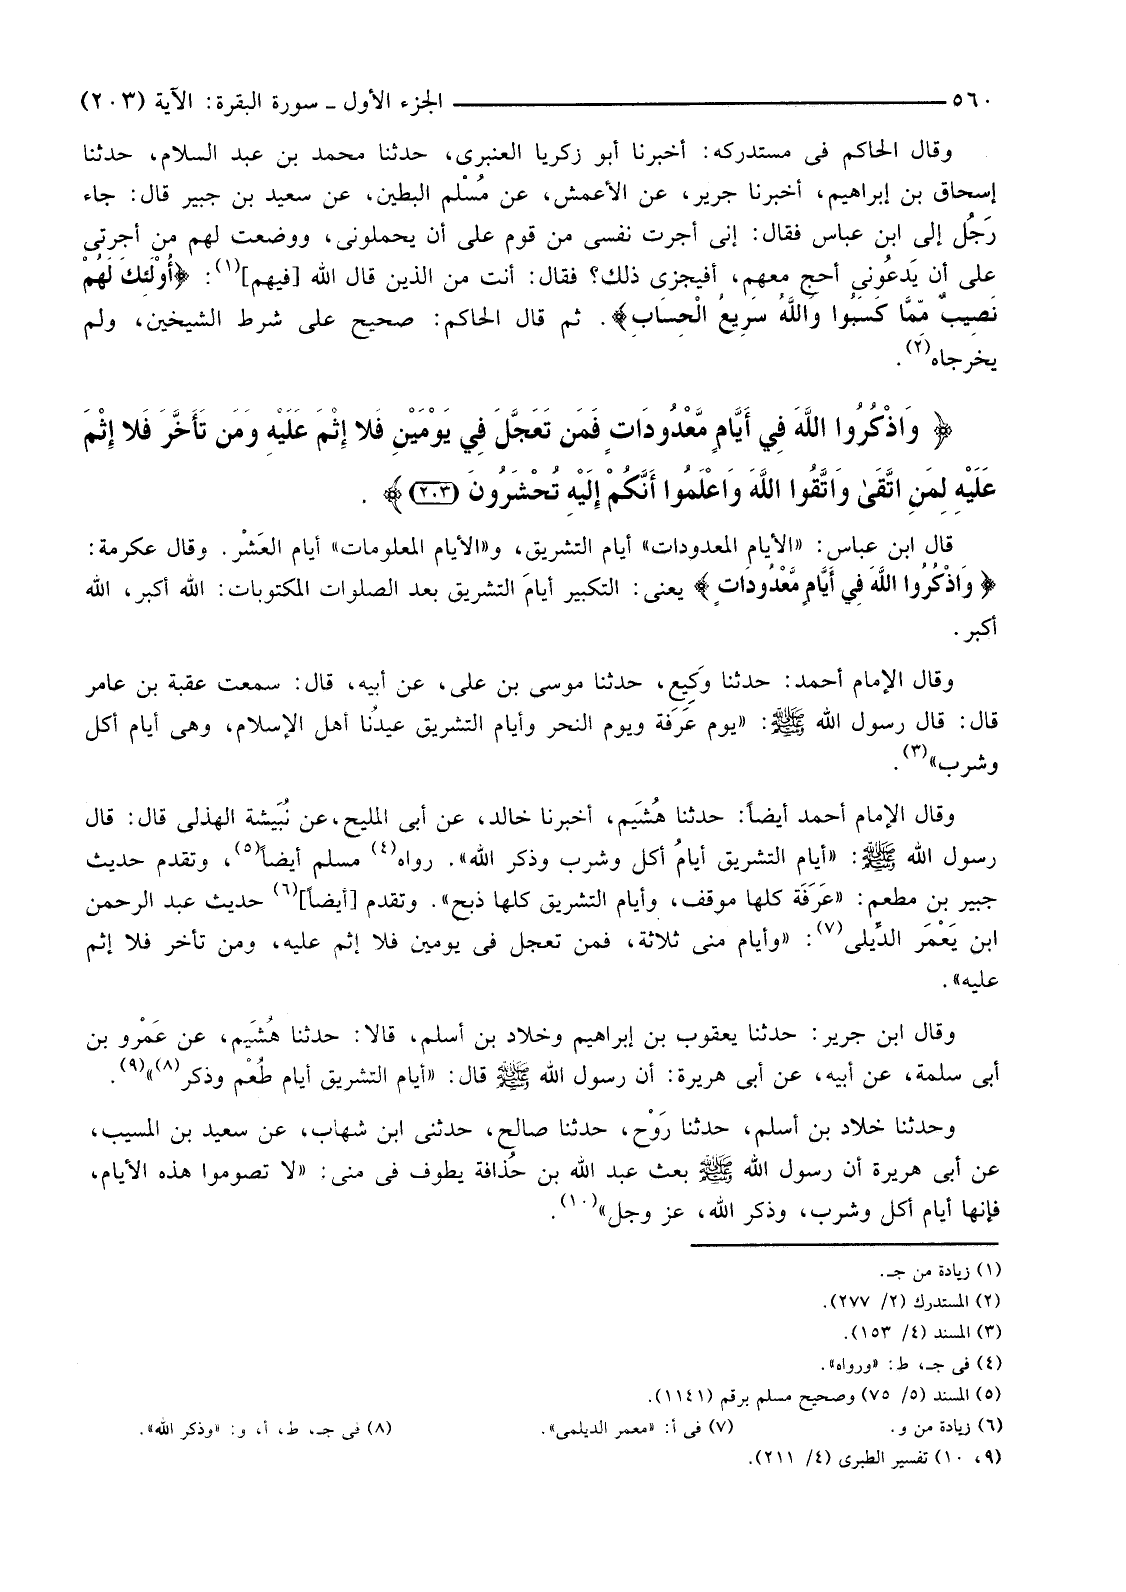 ٥٦٠ ـــــــــــــــــ الجزء الأول ـ سورة البقرة: الآية (٢٠٣)
وقال الحاكم فى مستدركه: أخبرنا أبو زكريا العنبرى، حدثنا محمد بن عبد السلام، حدثنا
إسحاق بن إبراهيم، أخبرنا جرير، عن الأعمش، عن مُسْلم البطين، عن سعيد بن جبير قال: جاء
رَجُل إلى ابن عباس فقال: إنى أجرت نفسى من قوم على أن يحملونى، ووضعت لهم من أجرتى
على أن يَدعُونى أحج معهم، أفيجزى ذلك؟ فقال: أنت من الذين قال الله [فيهم](١): ﴿أُوْلَئِكَ لَهُمْ
نَصِيبٌ مِّمَّا كَسَبُوا وَاللَّهُ سَرِيعُ الْحِسَابِ﴾. ثم قال الحاكم: صحيح على شرط الشيخين، ولم
يخرجاه(٢).
﴿ وَاذْكُرُوا اللَّهَ فِي أَيَّامٍ مَّعْدُودَاتٍ فَمَن تَعَجَّلَ فِي يَوْمَيْنِ فَلا إِثْمَ عَلَيْهِ وَمَن تَأَخَّرَ فَلا إِثْمَ
عَلَيْهِ لِمَنِ اتَّقَىٰ وَاتَّقُوا اللَّهَ وَاعْلَمُوا أَنَّكُمْ إِلَيْهِ تُحْشَرُونَ (٢٠٣)﴾ .
قال ابن عباس: «الأيام المعدودات» أيام التشريق، و«الأيام المعلومات» أيام العَشْر. وقال عكرمة:
﴿ وَاذْكُرُوا اللَّهَ فِي أَيَّامٍ مَّعْدُودَاتٍ ﴾ يعنى: التكبير أيامَ التشريق بعد الصلوات المكتوبات: الله أكبر، الله
أكبر.
وقال الإمام أحمد: حدثنا وَكِيع، حدثنا موسى بن على، عن أبيه، قال: سمعت عقبة بن عامر
قال: قال رسول الله ﷺ: «يوم عَرَفة ويوم النحر وأيام التشريق عيدُنا أهل الإسلام، وهى أيام أكل
وشرب»(٣).
وقال الإمام أحمد أيضاً: حدثنا هُشَيم، أخبرنا خالد، عن أبى المليح، عن نُبَيشة الهذلى قال: قال
رسول الله ﷺ: «أيام التشريق أيامُ أكل وشرب وذكر الله». رواه(٤) مسلم أيضاً(٥)، وتقدم حديث
جبير بن مطعم: «عَرَفَة كلها موقف، وأيام التشريق كلها ذبح». وتقدم [أيضاً](٦) حديث عبد الرحمن
ابن يَعْمَر الدِّيلى(٧): «وأيام منى ثلاثة، فمن تعجل فى يومين فلا إثم عليه، ومن تأخر فلا إثم
عليه».
وقال ابن جرير: حدثنا يعقوب بن إبراهيم وخلاد بن أسلم، قالا: حدثنا هُشَيم، عن عَمْرو بن
أبى سلمة، عن أبيه، عن أبى هريرة: أن رسول الله ﷺ قال: «أيام التشريق أيام طُعْم وذكر(٨)»(٩).
وحدثنا خلاد بن أسلم، حدثنا رَوْح، حدثنا صالح، حدثنى ابن شهاب، عن سعيد بن المسيب،
عن أبى هريرة أن رسول الله ﷺ بعث عبد الله بن حُذافة يطوف فى منى: «لا تصوموا هذه الأيام،
فإنها أيام أكل وشرب، وذكر الله، عز وجل»(١٠).
(١) زيادة من جـ.
(٢) المستدرك (٢/ ٢٧٧).
(٣) المسند (٤/ ١٥٣).
(٤) فى جـ، ط: «ورواه».
(٥) المسند (٥/ ٧٥) وصحيح مسلم برقم (١١٤١).
(٦) زيادة من و. (٧) فى أ: «معمر الديلمى». (٨) فى جـ، ط، أ، و: «وذكر الله».
(٩، ١٠) تفسير الطبرى (٤/ ٢١١).